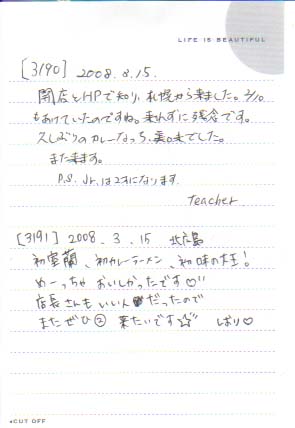 LIFE IS BEAUTIFUL
[3190] 2008.3.15.
閉店とHPで知り、札幌から来ました。2/10
もあけていたのですね。来れずに残念です。
久しぶりのカレーなっち、美味でした。
また来ます。
P.S. Jr.は2才になります
Teacher
[3191] 2008.3.15 北広島
初室蘭、初カレーラーメン、初味の大王!
めーっちゃおいしかったです♡
店長さんもいい人だったので
またぜひ② 来たいです☆ しおり♡
◂CUT OFF